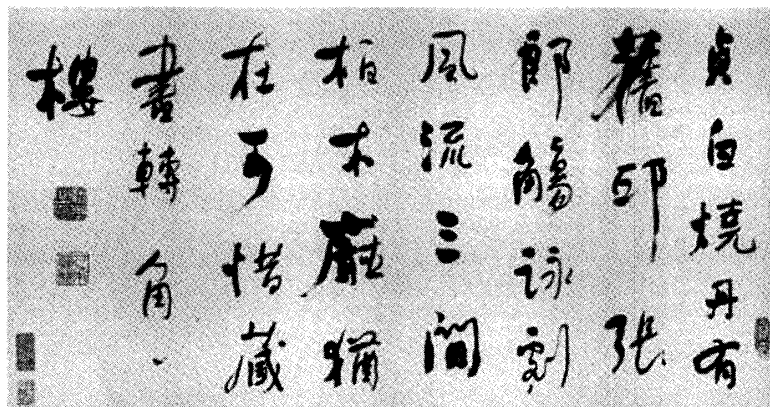 貞白燒丹有
舊邱張
郎觴詠劇
風流三間
柏木廳猶
在可惜藏
書轉角、
樓